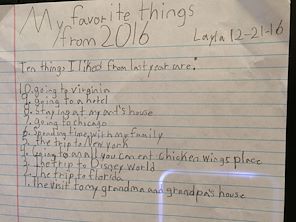 My favorite things
from 2016
Layla 12-21-16
Ten things I liked from last year are:
10. going to virginia
9. going to a hotel
8. staying at my ant's house
7. going to chicago
6. spending time with my family
5. the trip to New york
4. Going to an all you can eat chicken wings place
3. the trip to Disney world
2. the trip to florida
1. The visit to my grandma and grandpa's house